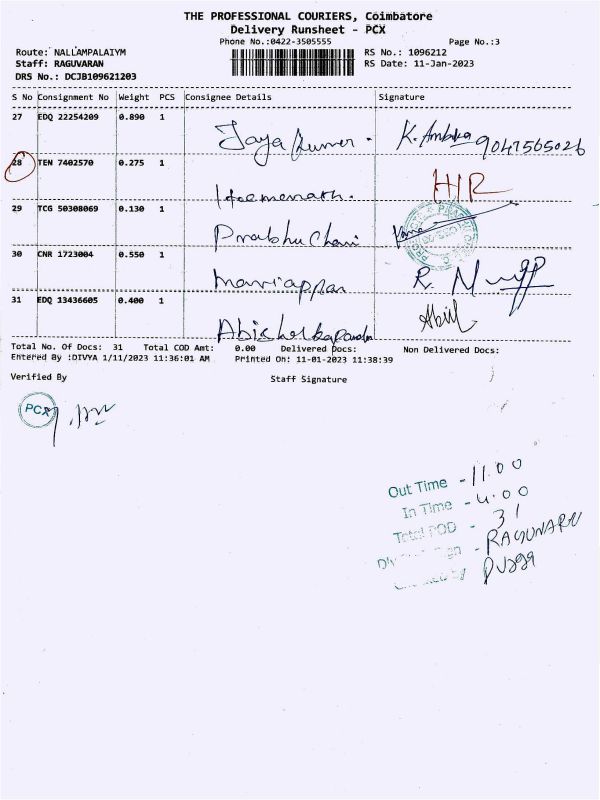 THE PROFESSIONAL COURIERS, Coimbatore
Delivery Runsheet - PCX
Phone No.:0422-3505555 Page No.:3
Route: NALLAMPALAIYM RS No.: 1096212
Staff: RAGUVARAN RS Date: 11-Jan-2023
DRS No.: DCJB109621203
S No Consignment No Weight PCS Consignee Details Signature
27 EDQ 22254209 0.890 1
Jaya Kumar. K. Ambika 9047565026
28 TEN 7402570 0.275 1
Heemanath. H/R
29 TCG 50308069 0.130 1
Prabhu Chari
30 CNR 1723004 0.550 1
mariappan R.
31 EDQ 13436605 0.400 1
Total No. Of Docs: 31 Total COD Amt: 0.00 Delivered Docs: Non Delivered Docs:
Entered By :DIVYA 1/11/2023 11:36:01 AM Printed On: 11-01-2023 11:38:39
Verified By Staff Signature
PCX
Out Time - 11.00
In Time - 4.00
Total POD - 31
- RAGUNARU